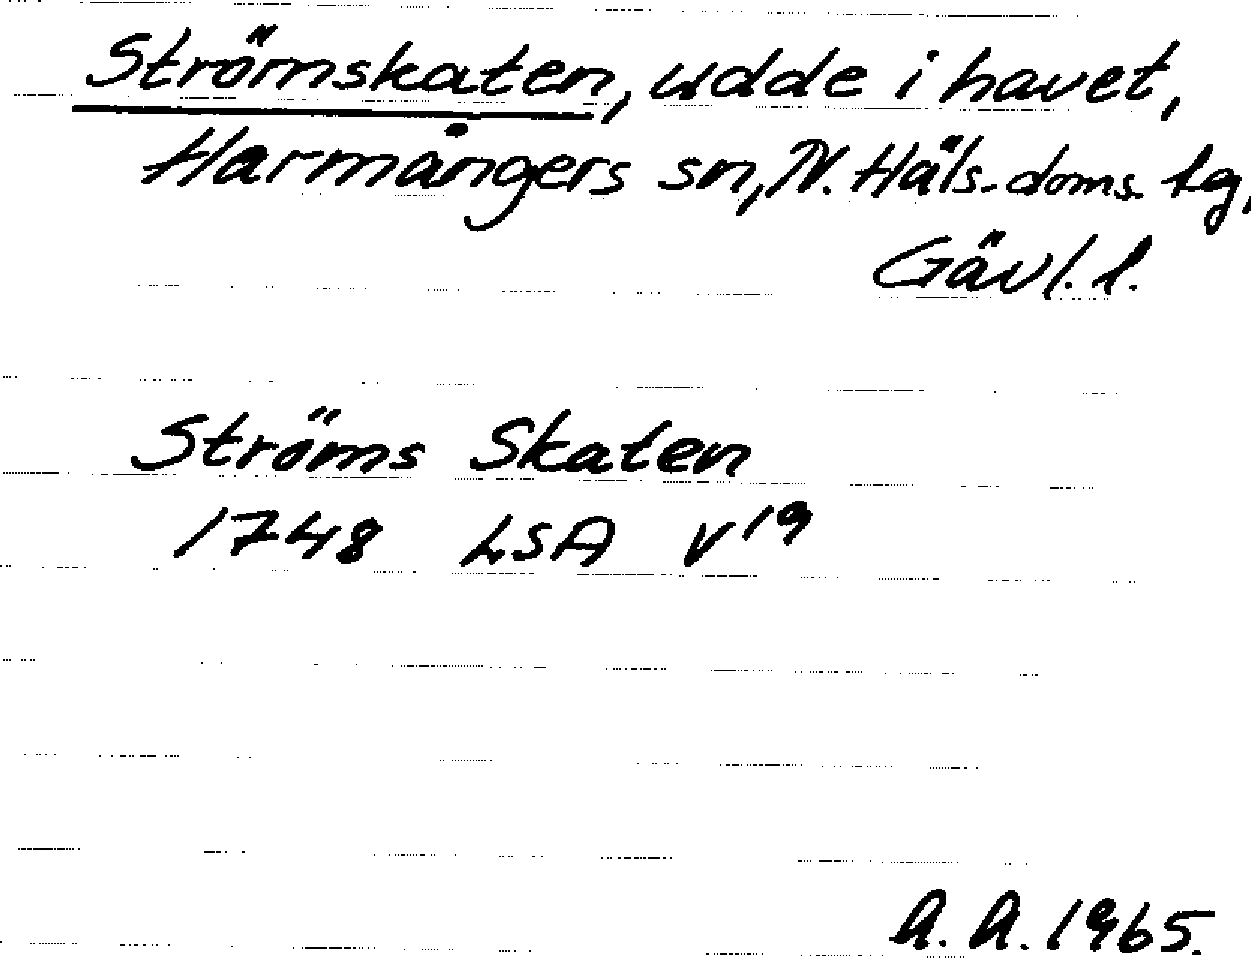 Strömskaten, udde i havet,
Harmångers sn, N. Häls. doms. tg,
Gävl. l.
Ströms Skaten
1748 LSA V¹⁹
A. A. 1965.